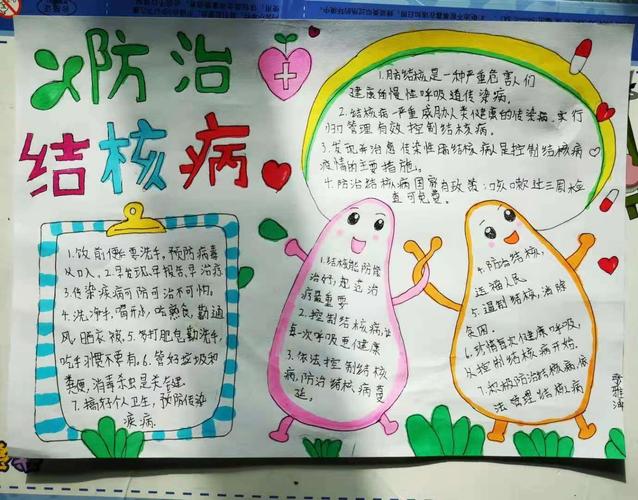 防治
结核病
1.肺结核是一种严重危害人们
健康的慢性呼吸道传染病。
2.结核病严重威胁人类健康的传染病,实行
归口管理有效控制结核病。
3.发现并治愈传染性肺结核病人是控制结核病
疫情的主要措施。
4.防治结核病国家有政策:咳嗽过三周检
查可免费。
1.饭前便后要洗手,预防病毒
从口入。2.早发现早报告,早治疗
3.传染疾病可防可治不可怕。
4.洗净手,喝开水,吃熟食,勤通
风,晒衣被。5.打肥皂勤洗手,
吃手习惯不要有。6.管好垃圾和
粪便,消毒杀虫是关键。
7.搞好个人卫生,预防传染
疾病。
1.结核能防能
治好,规范治
疗最重要
2.控制结核病,让
每一次呼吸更健康
3.依法控制结核
病,防治结核病蔓
延。
4.防治结核,
造福人民
5.遏制结核,消除
贫困。
6.珍惜每次健康呼吸,
从控制结核病开始
7.积极防治结核病,依
法管理结核病